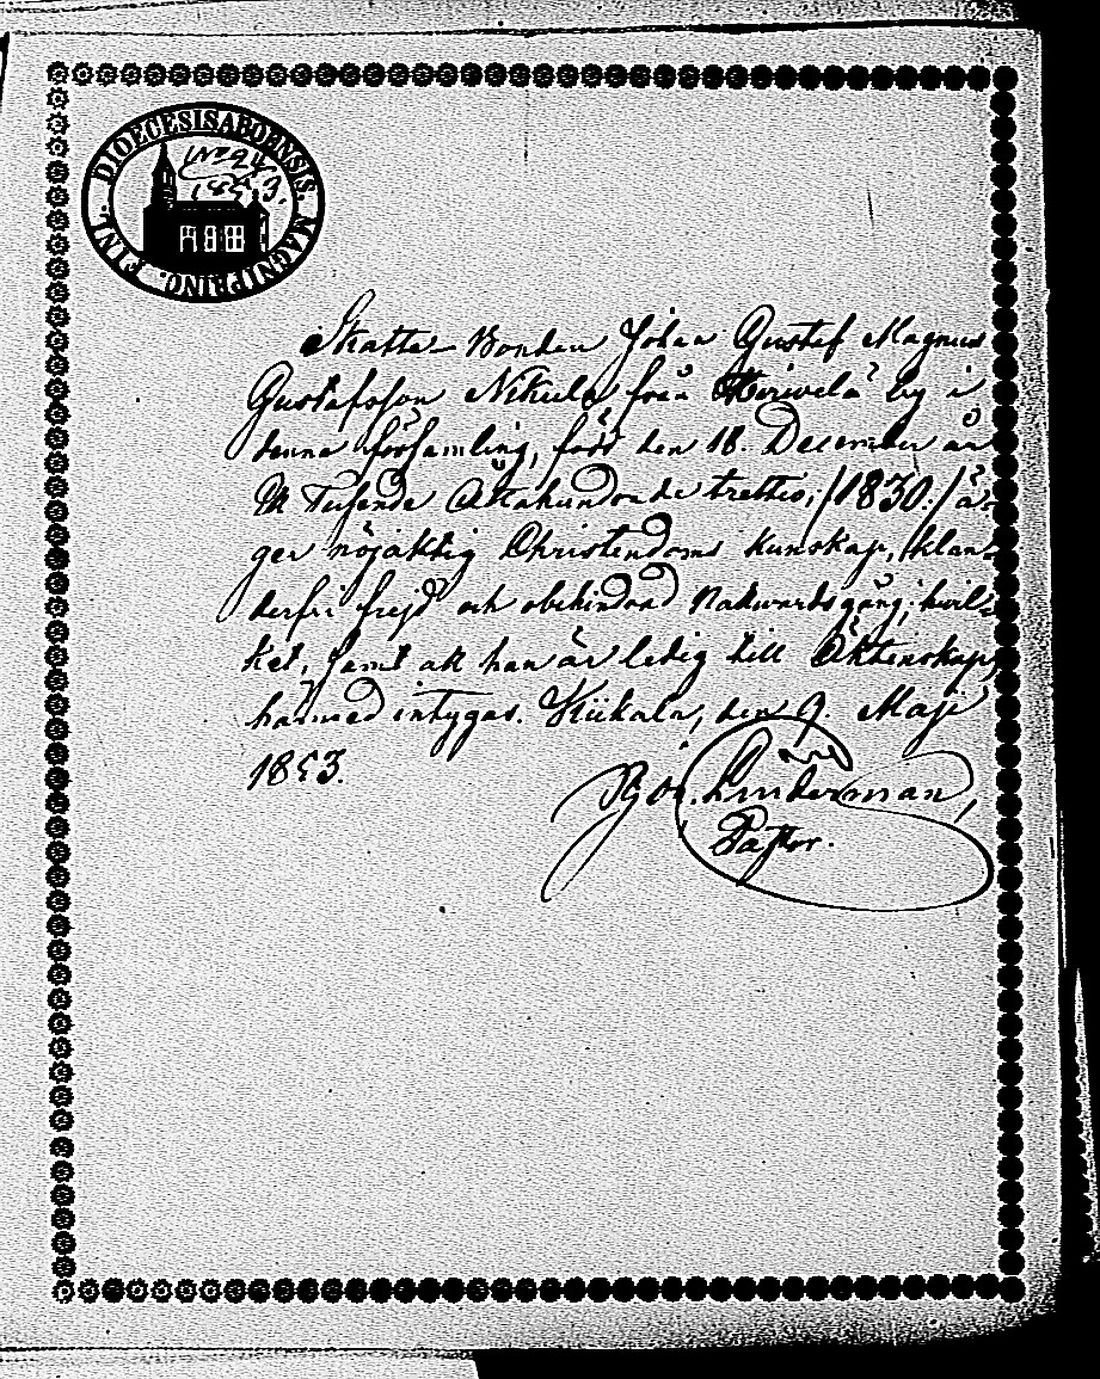 DIOECESIS ABOENSIS. MAGNI PRINC. FINL.
No 24
1853.
Skatte-Bonden Johan Gustaf Magnus
Gustafsson Nikula från Hirvelä by i
denna församling, född den 18. December år
Ett Tusende Åttahundrade trettio, /1830./ ä-
ger nöjaktig Christendoms kunskap, klan-
derfri frejd och obehindrad Nattvardsgång; hvil-
ket, samt att han är ledig till Äktenskap,
härmed intygas. Kiikala, den 9. Maji
1853.
Linderman,
Pastor.